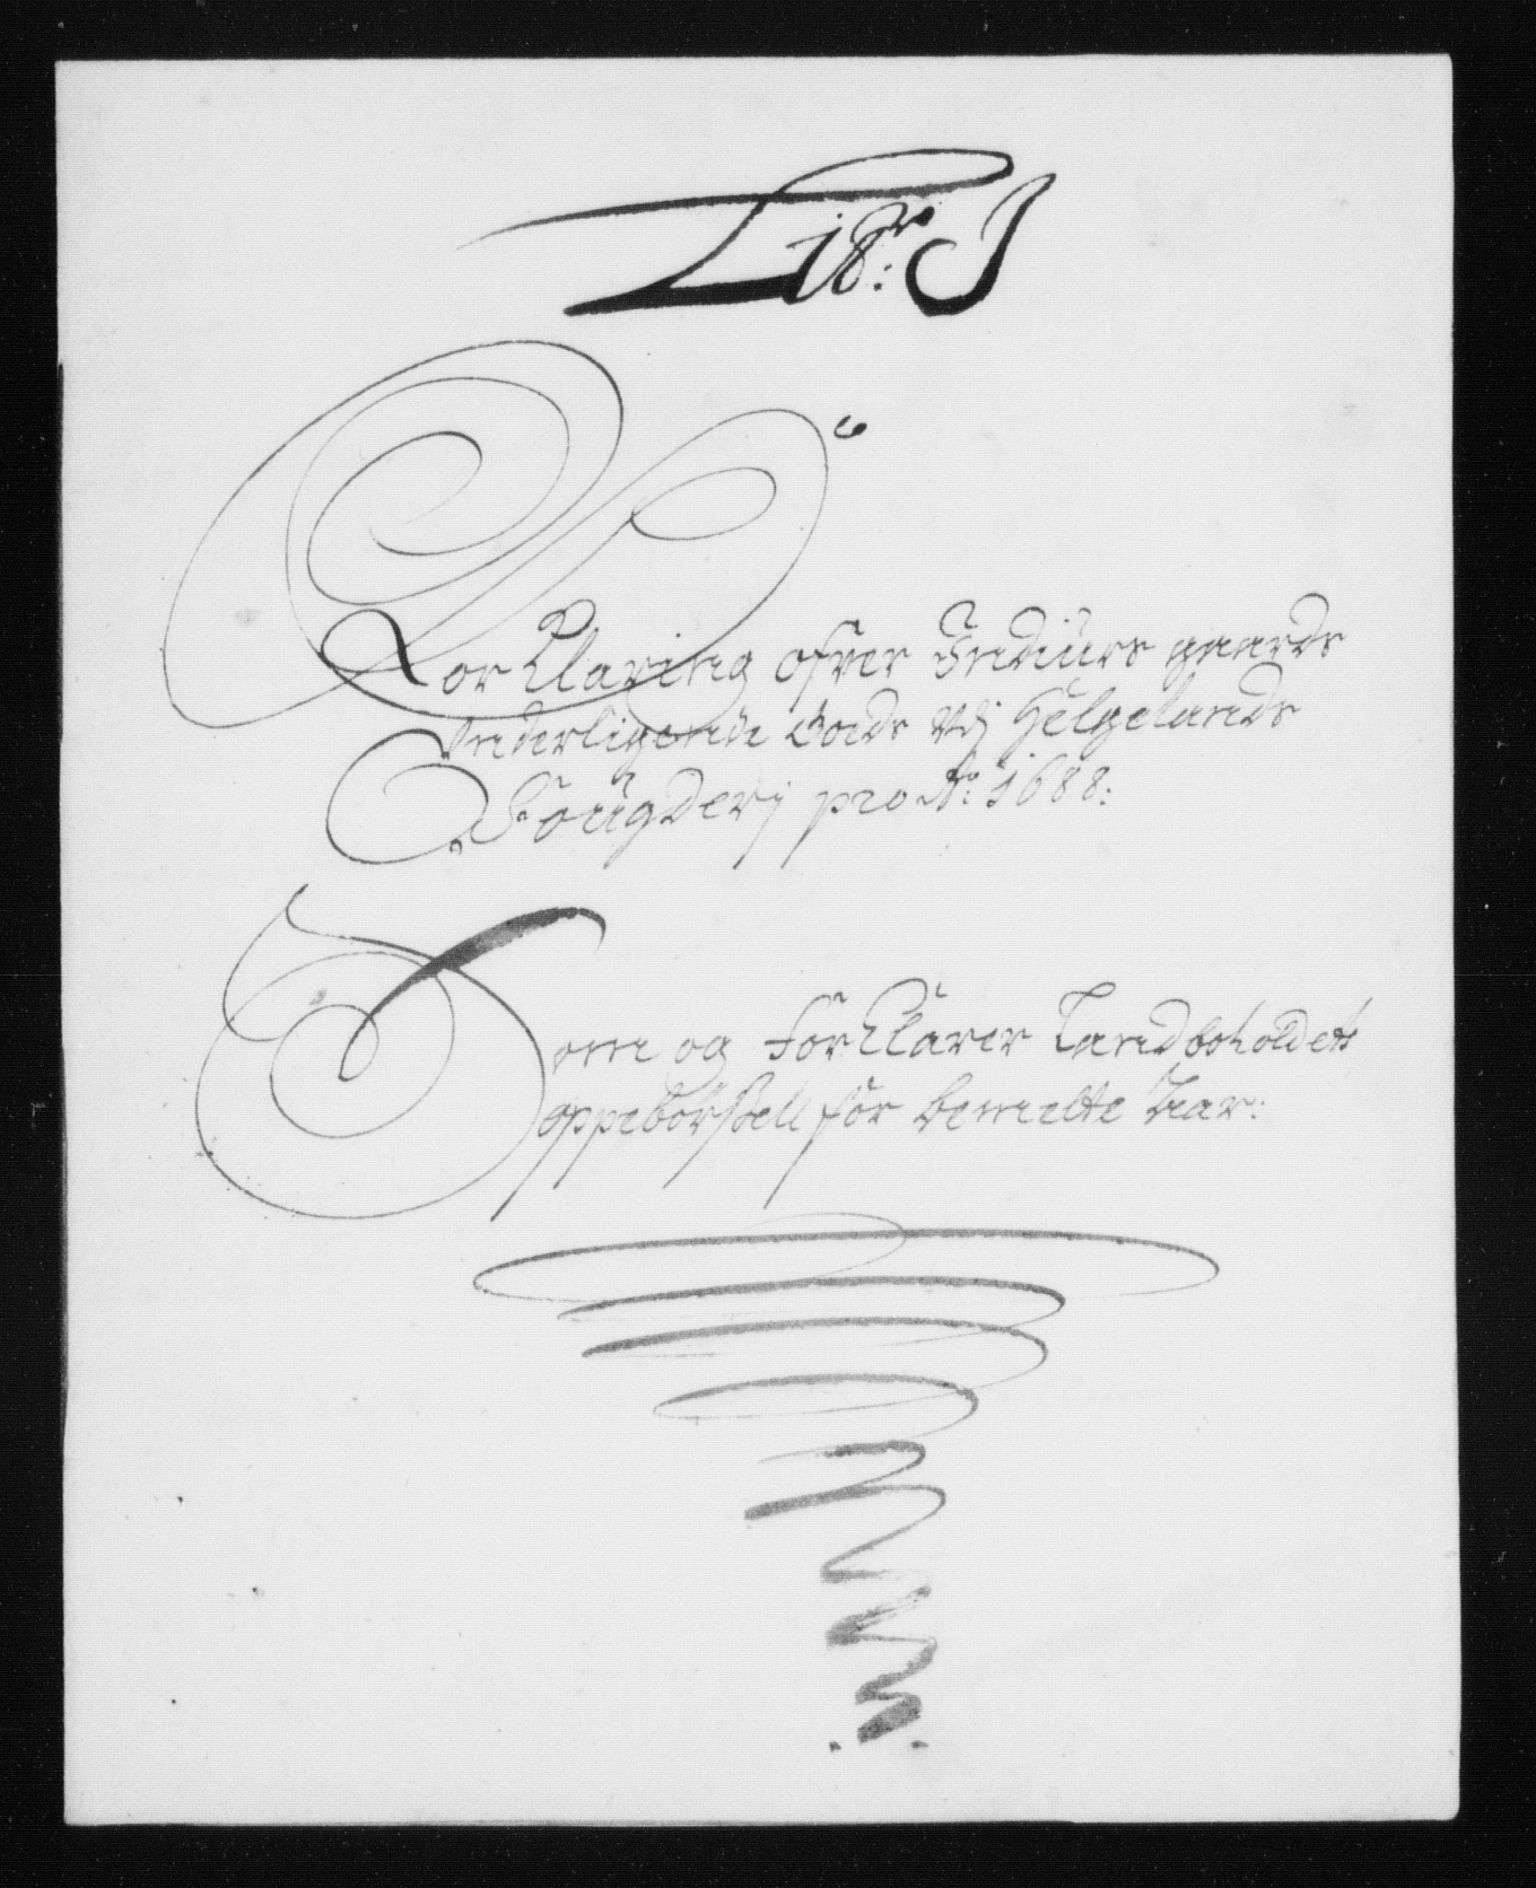 Litr: J
ForKlaring ofver Induirs gaards
Underligende Goeds Udj Helgelands
Fougderj pro Ao: 1688:
Som og ForKlarer Landboholdets
oppebörsell for bemelte Aar: